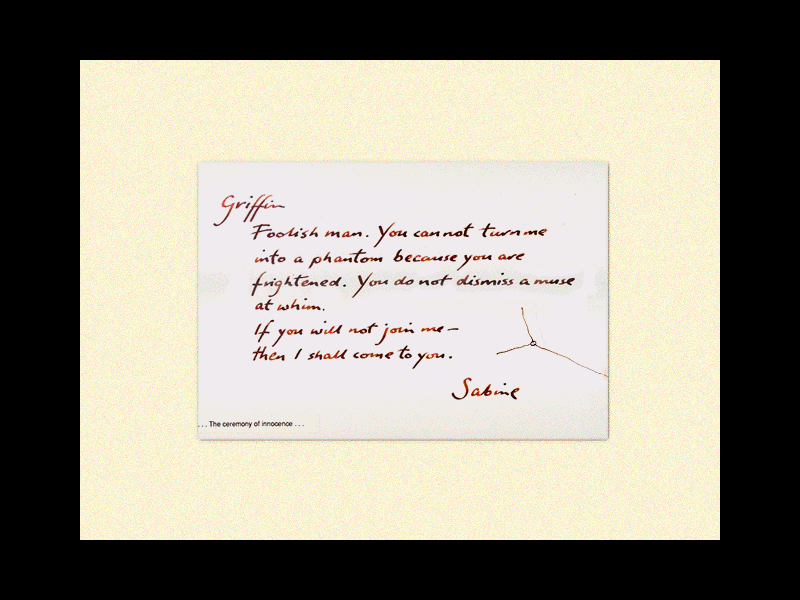 Griffin
Foolish man. You cannot turn me
into a phantom because you are
frightened. You do not dismiss a muse
at whim.
If you will not join me—
then I shall come to you.
Sabine
. . . The ceremony of innocence . . .